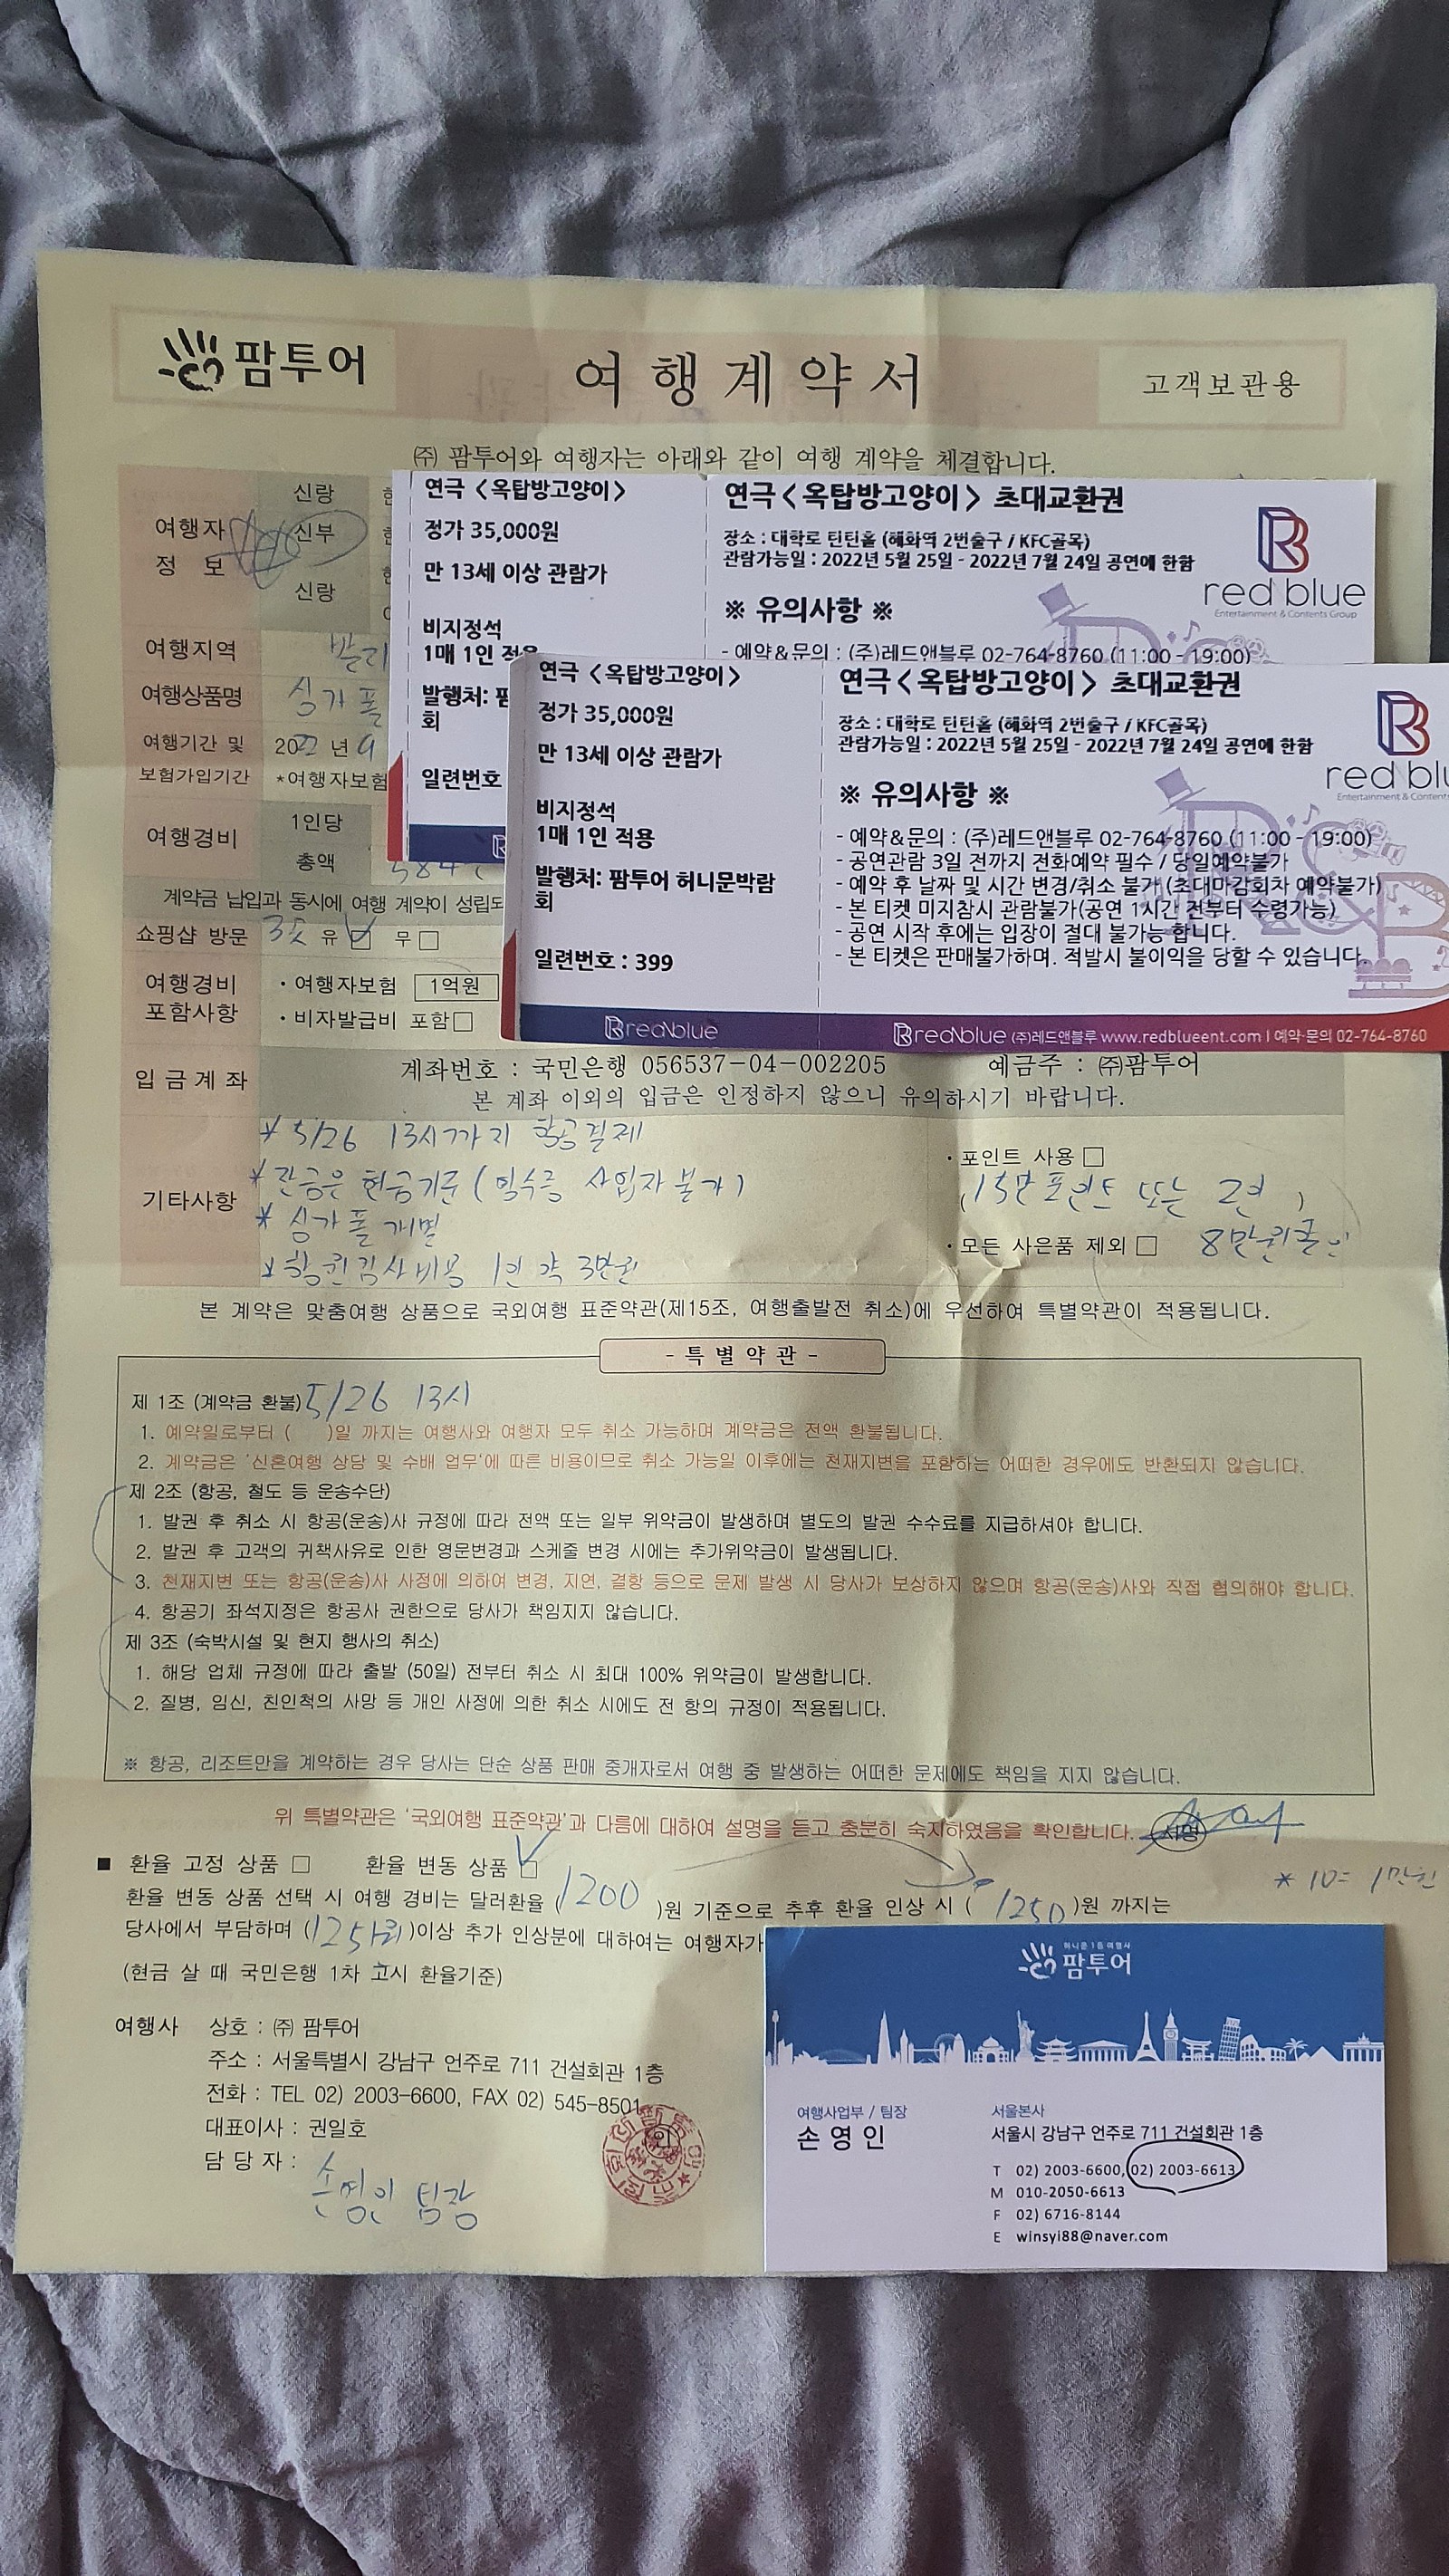 팜투어
여행계약서
고객보관용
㈜ 팜투어와 여행자는 아래와 같이 여행 계약을 체결합니다.
여행자
정 보
신랑
신부
신랑
여행지역 발리
여행상품명 싱가폴
여행기간 및
보험가입기간
2022 년 9
*여행자보험
여행경비
1인당
총액
계약금 납입과 동시에 여행 계약이 성립되
쇼핑샵 방문 유 □ 무 □
여행경비
포함사항
· 여행자보험 1억원
· 비자발급비 포함 □
연극 <옥탑방고양이>
정가 35,000원
만 13세 이상 관람가
비지정석
1매 1인 적용
발행처: 팜
회
일련번호
연극 <옥탑방고양이> 초대교환권
장소 : 대학로 틴틴홀 (혜화역 2번출구 / KFC골목)
관람가능일 : 2022년 5월 25일 - 2022년 7월 24일 공연에 한함
※ 유의사항 ※
- 예약&문의 : (주)레드앤블루 02-764-8760 (11:00 - 19:00)
red blue
Entertainment & Contents Group
연극 <옥탑방고양이>
정가 35,000원
만 13세 이상 관람가
비지정석
1매 1인 적용
발행처: 팜투어 허니문박람
회
일련번호 : 399
연극 <옥탑방고양이> 초대교환권
장소 : 대학로 틴틴홀 (혜화역 2번출구 / KFC골목)
관람가능일 : 2022년 5월 25일 - 2022년 7월 24일 공연에 한함
※ 유의사항 ※
- 예약&문의 : (주)레드앤블루 02-764-8760 (11:00 - 19:00)
- 공연관람 3일 전까지 전화예약 필수 / 당일예약불가
- 예약 후 날짜 및 시간 변경/취소 불가 (초대마감회차 예약불가)
- 본 티켓 미지참시 관람불가(공연 1시간 전부터 수령가능)
- 공연 시작 후에는 입장이 절대 불가능 합니다.
- 본 티켓은 판매불가하며. 적발시 불이익을 당할 수 있습니다.
red blu
Entertainment & Content
redNblue
redNblue (주)레드앤블루 www.redblueent.com | 예약·문의 02-764-8760
입금계좌
계좌번호 : 국민은행 056537-04-002205 예금주 : ㈜팜투어
본 계좌 이외의 입금은 인정하지 않으니 유의하시기 바랍니다.
기타사항
* 5/26 13시까지 항공결제
* 잔금은 현금기준 (영수증 사업자불가)
* 싱가폴 개별
* 항원검사비용 1인 약 3만원
· 포인트 사용 □
(15만 포인트 또는 )
· 모든 사은품 제외 □ 8만원
본 계약은 맞춤여행 상품으로 국외여행 표준약관(제15조, 여행출발전 취소)에 우선하여 특별약관이 적용됩니다.
- 특별약관 -
제 1조 (계약금 환불) 5/26 13시
1. 예약일로부터 ( )일 까지는 여행사와 여행자 모두 취소 가능하며 계약금은 전액 환불됩니다.
2. 계약금은 '신혼여행 상담 및 수배 업무'에 따른 비용이므로 취소 가능일 이후에는 천재지변을 포함하는 어떠한 경우에도 반환되지 않습니다.
제 2조 (항공, 철도 등 운송수단)
1. 발권 후 취소 시 항공(운송)사 규정에 따라 전액 또는 일부 위약금이 발생하며 별도의 발권 수수료를 지급하셔야 합니다.
2. 발권 후 고객의 귀책사유로 인한 영문변경과 스케줄 변경 시에는 추가위약금이 발생됩니다.
3. 천재지변 또는 항공(운송)사 사정에 의하여 변경, 지연, 결항 등으로 문제 발생 시 당사가 보상하지 않으며 항공(운송)사와 직접 협의해야 합니다.
4. 항공기 좌석지정은 항공사 권한으로 당사가 책임지지 않습니다.
제 3조 (숙박시설 및 현지 행사의 취소)
1. 해당 업체 규정에 따라 출발 (50일) 전부터 취소 시 최대 100% 위약금이 발생합니다.
2. 질병, 임신, 친인척의 사망 등 개인 사정에 의한 취소 시에도 전 항의 규정이 적용됩니다.
※ 항공, 리조트만을 계약하는 경우 당사는 단순 상품 판매 중개자로서 여행 중 발생하는 어떠한 문제에도 책임을 지지 않습니다.
위 특별약관은 '국외여행 표준약관'과 다름에 대하여 설명을 듣고 충분히 숙지하였음을 확인합니다. 서명
■ 환율 고정 상품 □ 환율 변동 상품 □
환율 변동 상품 선택 시 여행 경비는 달러환율 (1200)원 기준으로 추후 환율 인상 시 (1250)원 까지는
당사에서 부담하며 (1251원)이상 추가 인상분에 대하여는 여행자가
(현금 살 때 국민은행 1차 고시 환율기준)
여행사 상호 : ㈜ 팜투어
주소 : 서울특별시 강남구 언주로 711 건설회관 1층
전화 : TEL 02) 2003-6600, FAX 02) 545-8501
대표이사 : 권일호
담 당 자 : 손영인 팀장
허니문 1등 여행사
팜투어
여행사업부 / 팀장
손영인
서울본사
서울시 강남구 언주로 711 건설회관 1층
T 02) 2003-6600, 02) 2003-6613
M 010-2050-6613
F 02) 6716-8144
E winsyi88@naver.com